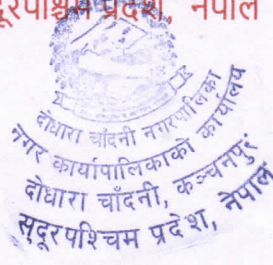 दूरपश्चिम प्रदेश, नेपाल
दोधारा चाँदनी नगरपालिका
नगर कार्यपालिकाको कार्यालय
दोधारा चाँदनी, कञ्चनपुर
सुदूरपश्चिम प्रदेश, नेपाल